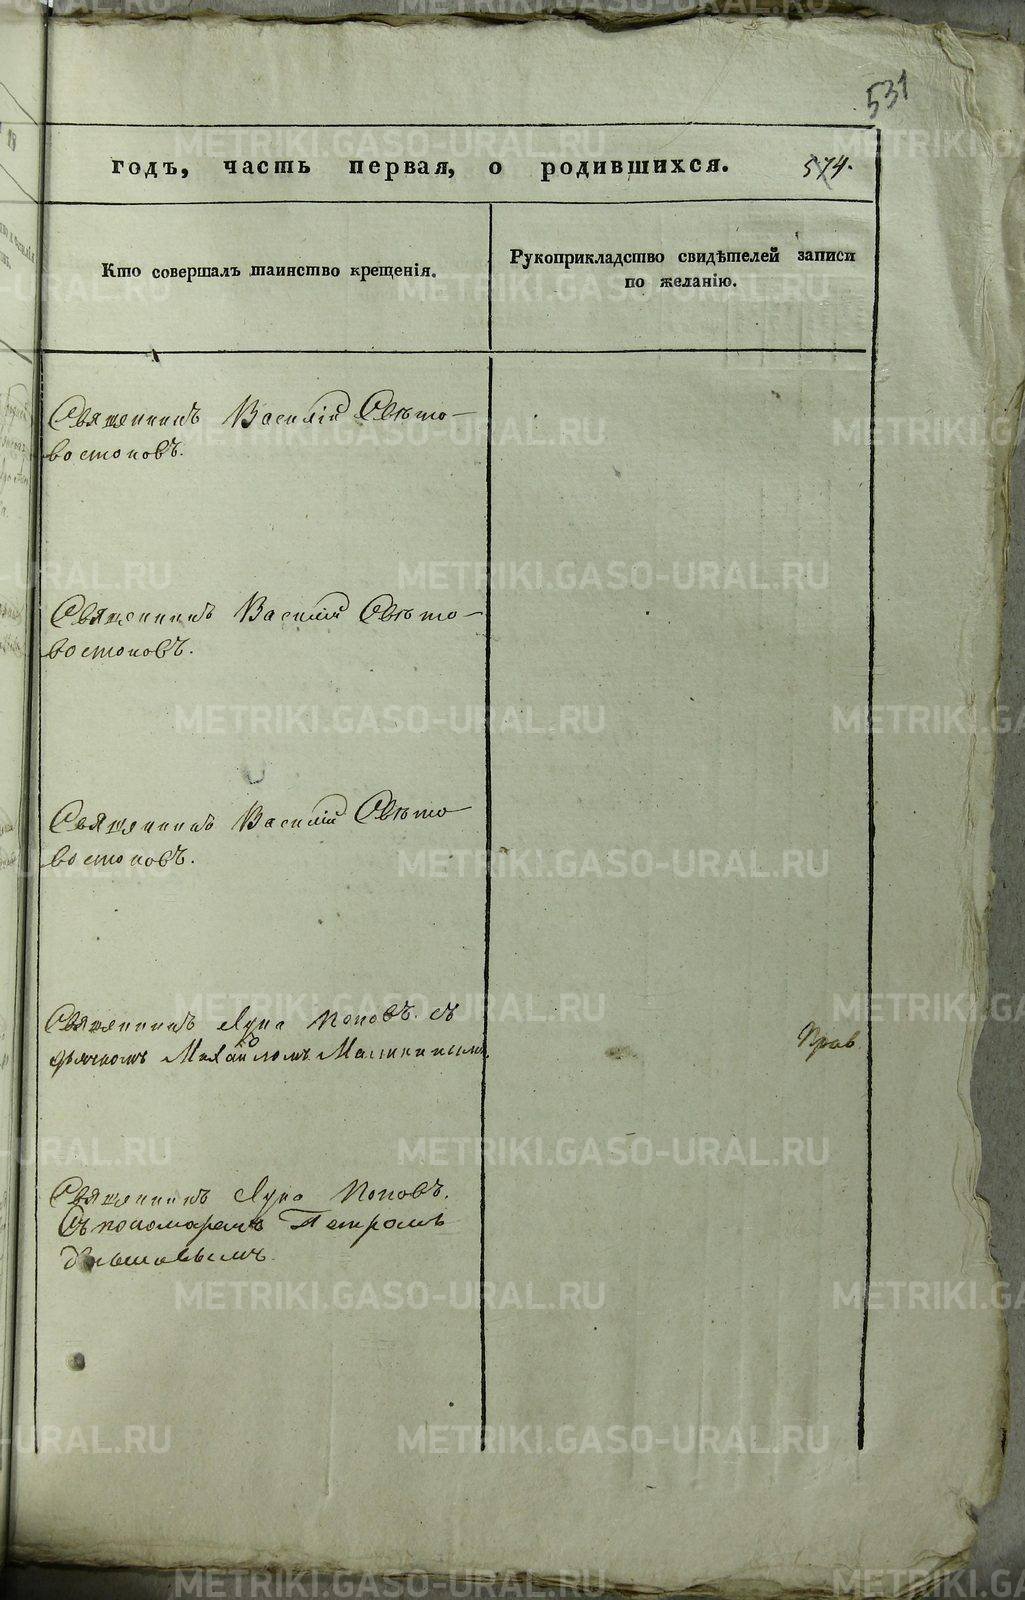 531
годъ, часть первая, о родившихся. 574.
Кто совершалъ таинство крещенія.
Рукоприкладство свидѣтелей записи
по желанію.
Священникъ Василій Свѣто-
востоковъ.
Священникъ Василій Свѣто-
востоковъ.
Священникъ Василій Свѣто
востоковъ.
Священникъ Лука Поповъ. съ
дьячкомъ Михайломъ
Прав
Священникъ Лука Поповъ.
Съ пономаремъ Петромъ
METRIKI.GASO-URAL.RU